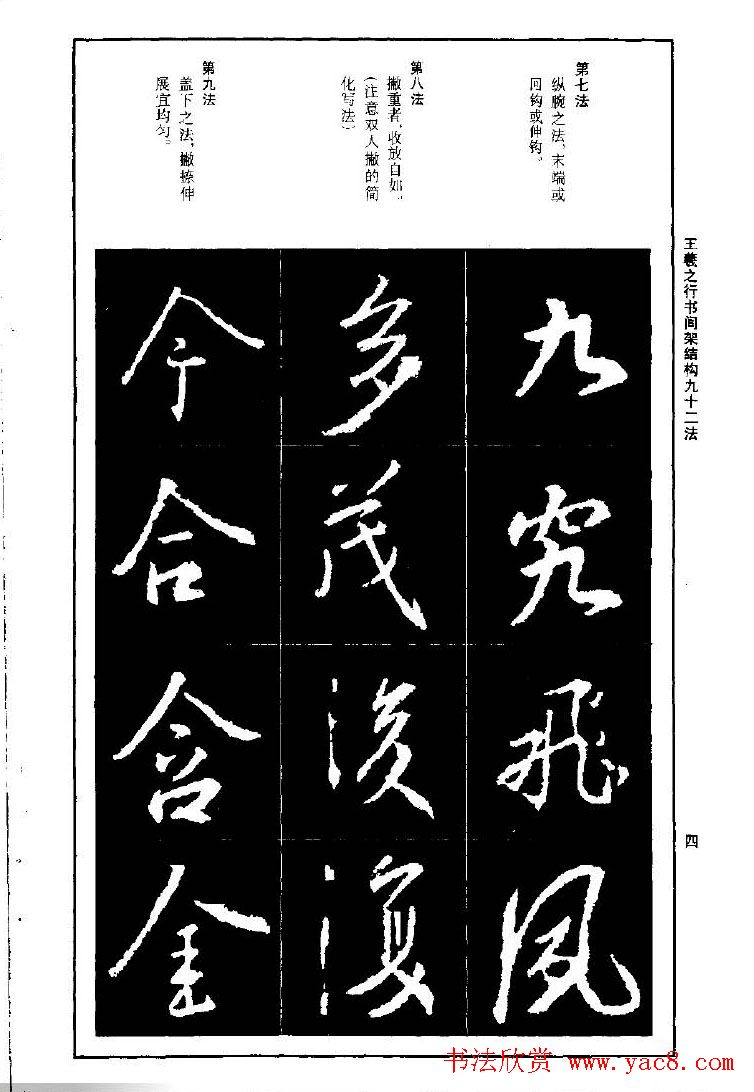 王羲之行书间架结构九十二法
四
第七法
纵腕之法，末端或
回钩或伸钩。
第八法
撇重者，收放自如。
(注意双人撇的简
化写法)
第九法
盖下之法，撇捺伸
展宜均匀。
九究飛風
多茂後復
今合含金
书法欣赏 www.yac8.com